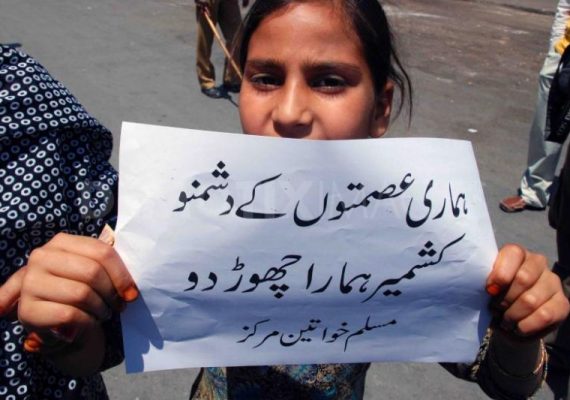 ہماری عصمتوں کے دشمنو
کشمیر ہمارا چھوڑ دو
مسلم خواتین مرکز